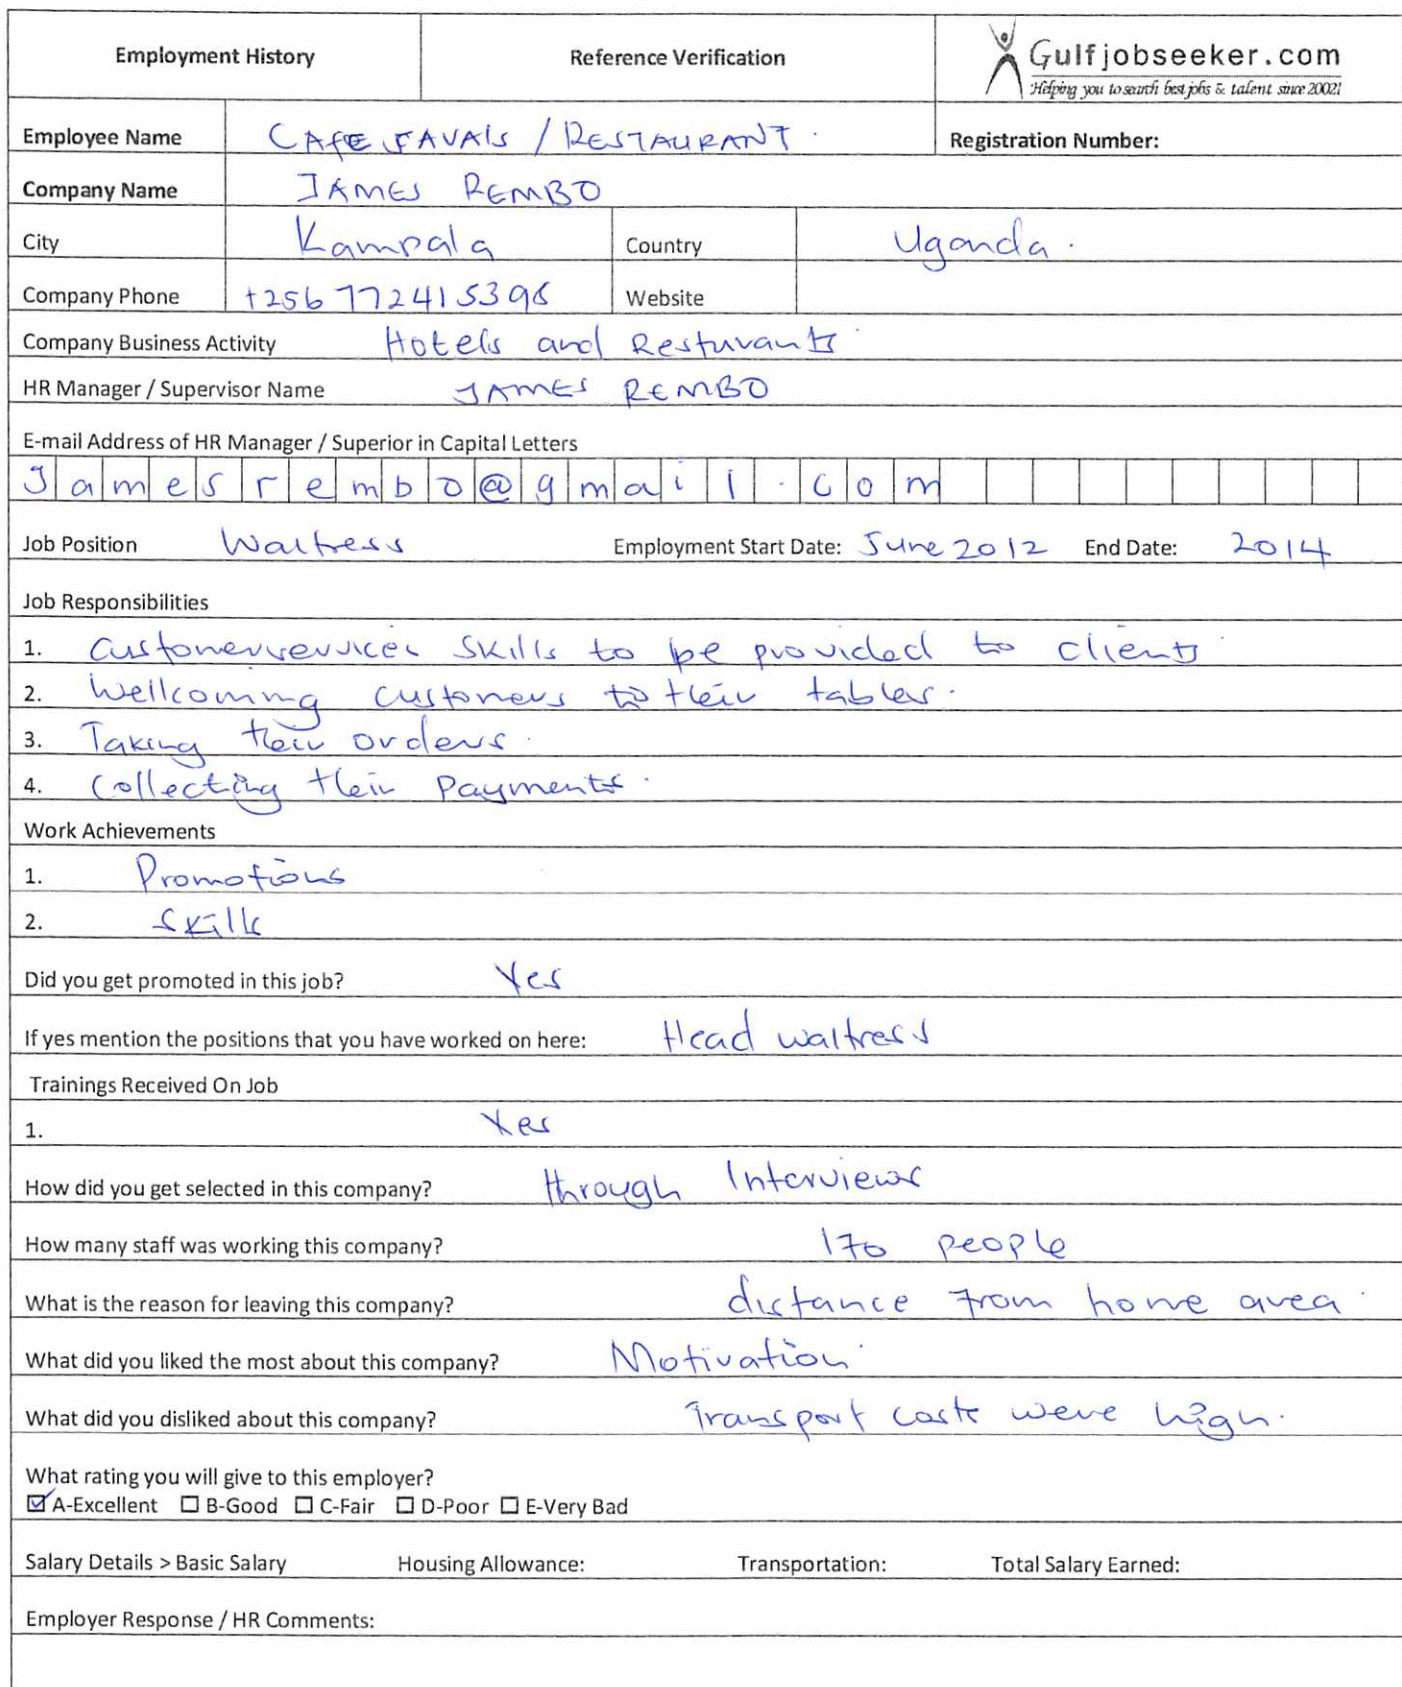 Employment History Reference Verification Gulfjobseeker.com
Helping you to search best jobs & talent since 2002!
Employee Name CAFE JAVAIS / RESTAURANT. Registration Number:
Company Name JAMES REMBO
City Kampala Country Uganda.
Company Phone +256 772415398 Website
Company Business Activity Hotels and Resturants
HR Manager / Supervisor Name JAMES REMBO
E-mail Address of HR Manager / Superior in Capital Letters
Jamesrembo@gmail.com
Job Position Waitress Employment Start Date: June 2012 End Date: 2014
Job Responsibilities
1. Customerservices skills to be provided to clients
2. Wellcoming customers to their tables.
3. Taking their orders.
4. Collecting their Payments.
Work Achievements
1. Promotions
2. Skills
Did you get promoted in this job? Yes
If yes mention the positions that you have worked on here: Head waitress
Trainings Received On Job
1. Yes
How did you get selected in this company? through Interviews
How many staff was working this company? 170 people
What is the reason for leaving this company? distance from home area.
What did you liked the most about this company? Motivation
What did you disliked about this company? Transport costs were high.
What rating you will give to this employer?
☑ A-Excellent ☐ B-Good ☐ C-Fair ☐ D-Poor ☐ E-Very Bad
Salary Details > Basic Salary Housing Allowance: Transportation: Total Salary Earned:
Employer Response / HR Comments: